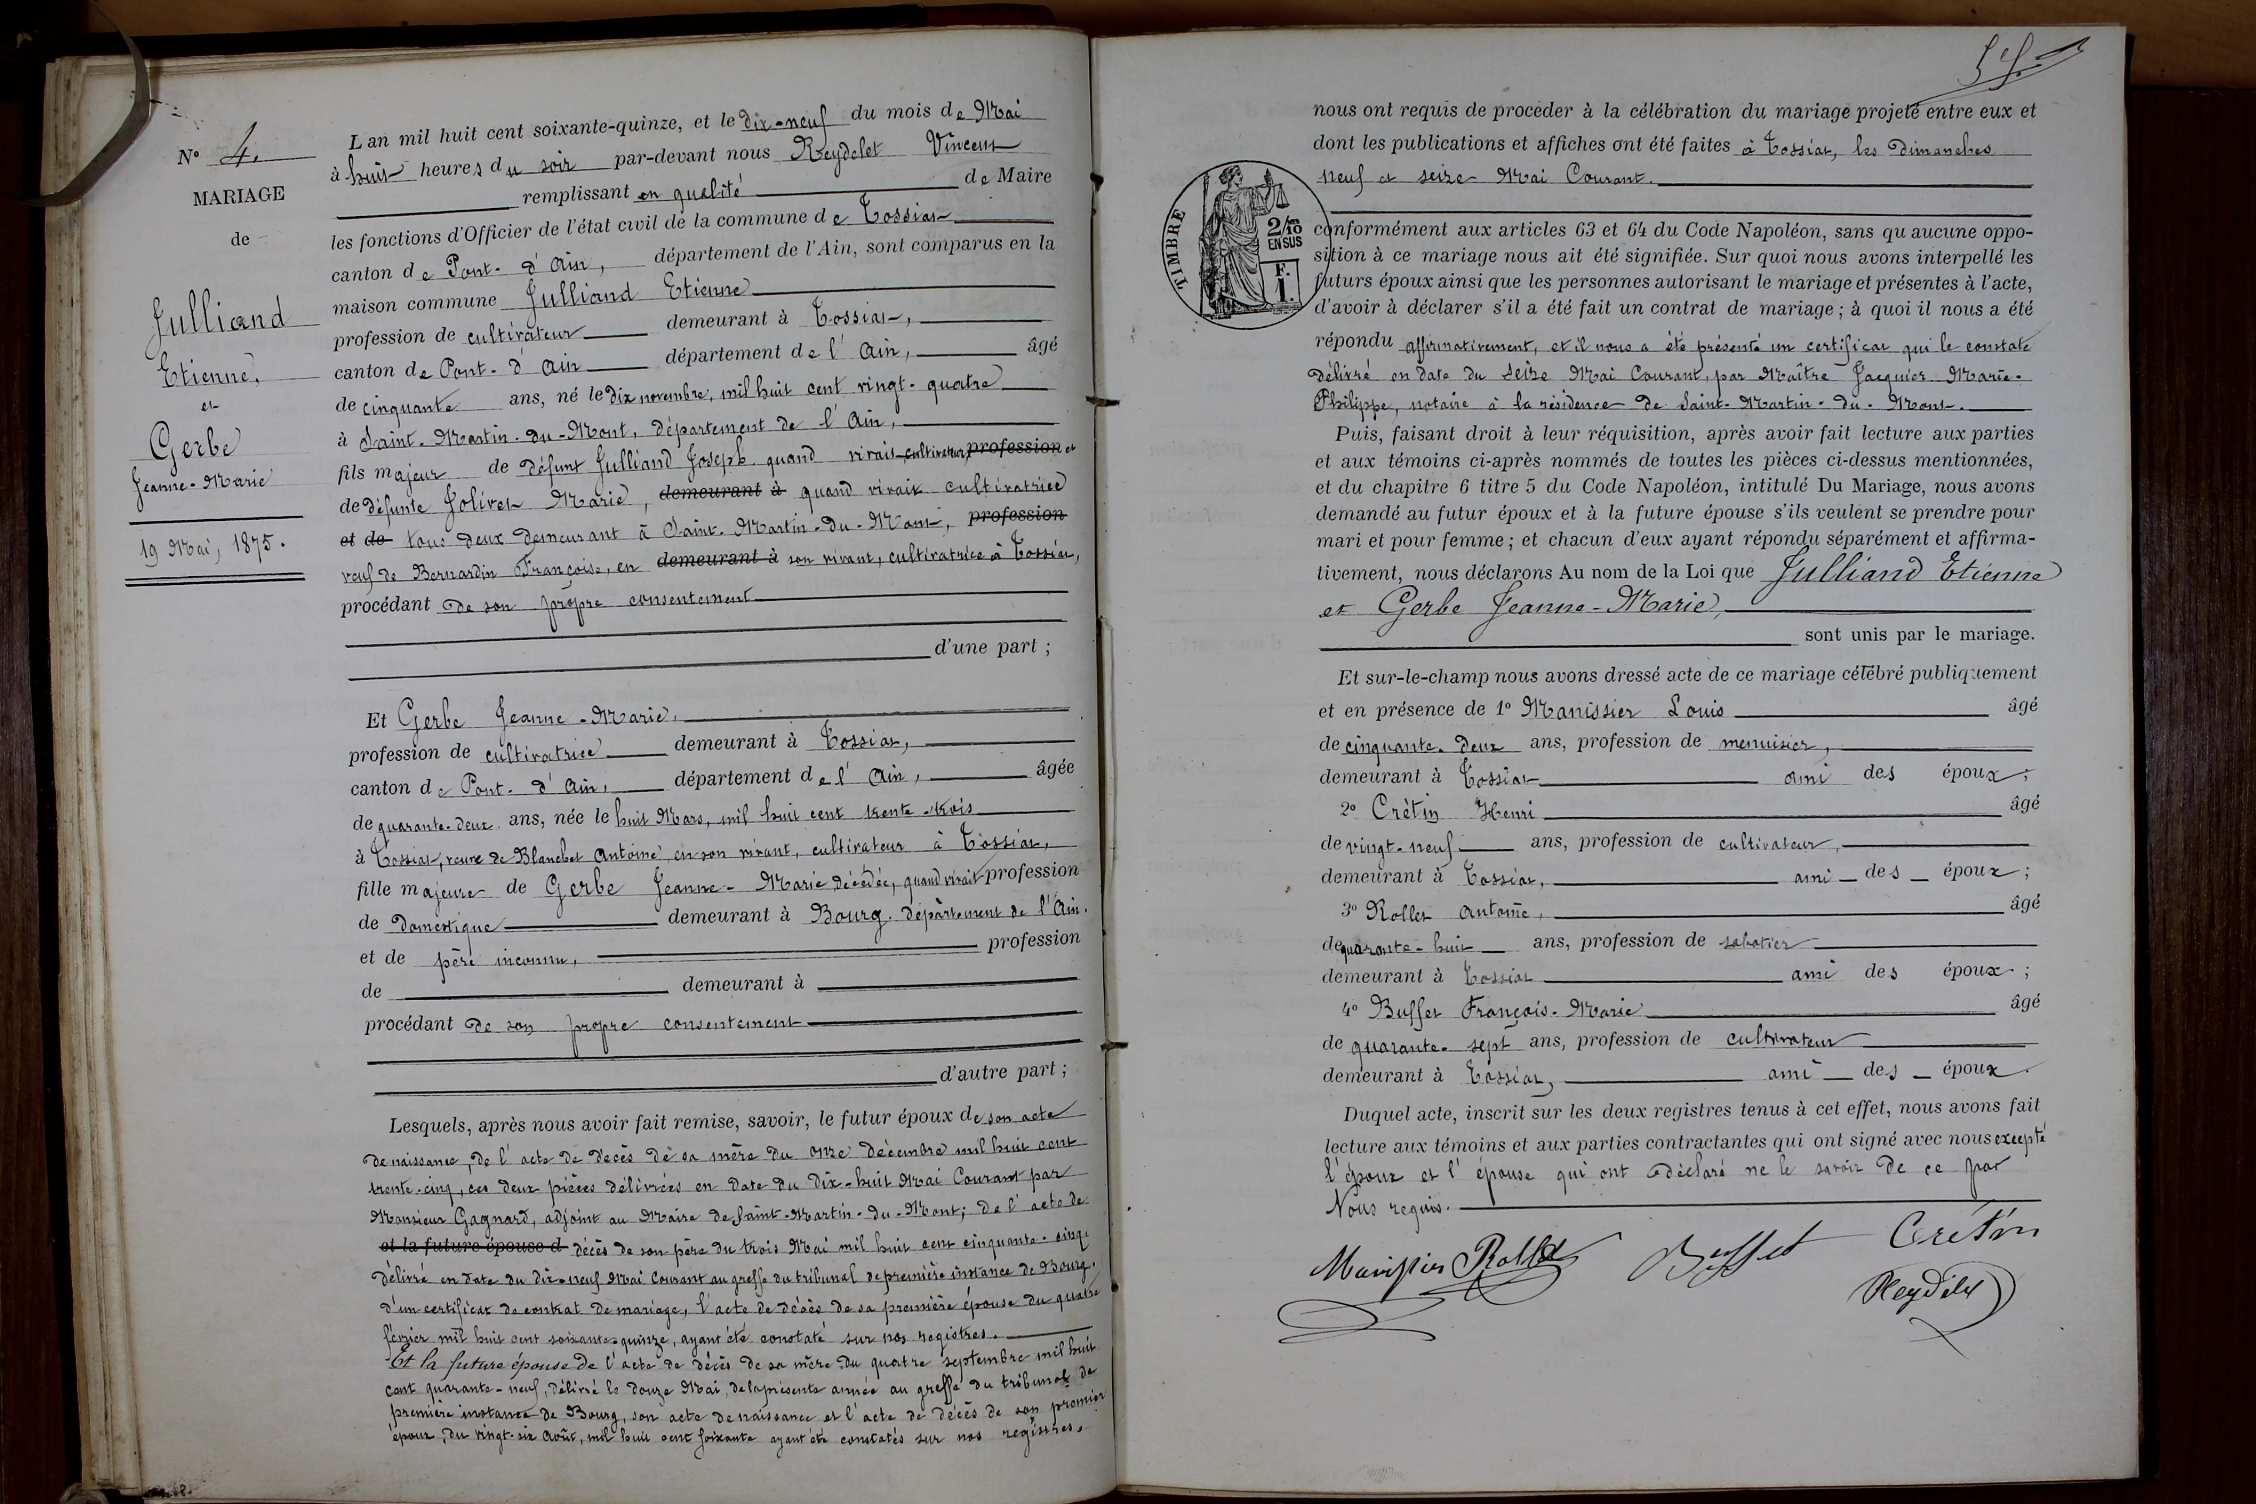 N° 4.
MARIAGE
de
Julliand
Etienne,
et
Gerbe
Jeanne-Marie
19 Mai, 1875.
L'an mil huit cent soixante-quinze, et le dix-neuf du mois de Mai
à huit heures du soir par-devant nous Reydelet Vincent
remplissant en qualité de Maire
les fonctions d'Officier de l'état civil de la commune de Tossiat
canton de Pont-d'Ain, département de l'Ain, sont comparus en la
maison commune Julliand Etienne
profession de cultivateur demeurant à Tossiat,
canton de Pont-d'Ain département de l'Ain, âgé
de cinquante ans, né le dix novembre, mil huit cent vingt-quatre
à Saint-Martin-du-Mont, département de l'Ain,
fils majeur de défunt Julliand Joseph quand vivait cultivateur profession et
de défunte Jolivet Marie, demeurant à quand vivait cultivatrice
et de tous deux demeurant à Saint-Martin-du-Mont, profession
veuf de Bernardin Françoise, en demeurant à son vivant, cultivatrice à Tossiat,
procédant de son propre consentement
d'une part ;
Et Gerbe Jeanne-Marie,
profession de cultivatrice demeurant à Tossiat,
canton de Pont-d'Ain, département de l'Ain, âgée
de quarante-deux ans, née le huit Mars, mil huit cent trente-trois
à Tossiat, veuve de Blanchet Antoine en son vivant, cultivateur à Tossiat,
fille majeure de Gerbe Jeanne-Marie décédée, quand vivait profession
de domestique demeurant à Bourg. département de l'Ain.
et de père inconnu, profession
de demeurant à
procédant de son propre consentement
d'autre part ;
Lesquels, après nous avoir fait remise, savoir, le futur époux de son acte
de naissance, de l'acte de décès de sa mère du onze décembre mil huit cent
trente-cinq, ces deux pièces délivrées en date du dix-huit Mai Courant par
Monsieur Gagnard, adjoint au Maire de Saint-Martin-du-Mont; de l'acte de
et la future épouse d décès de son père du trois Mai mil huit cent cinquante-cinq,
délivré en date du dix-neuf Mai Courant au greffe du tribunal de première instance de Bourg.
d'un certificat de contrat de mariage, l'acte de décès de sa première épouse du quatre
février mil huit cent soixante-quinze, ayant été constaté sur nos registres.
Et la future épouse de l'acte de décès de sa mère du quatre septembre mil huit
cent quarante-neuf, délivré le douze Mai, de la présente année au greffe du tribunal de
première instance de Bourg, son acte de naissance et l'acte de décès de son premier
époux, du vingt-six Août, mil huit cent soixante ayant été constatés sur nos registres.
nous ont requis de procéder à la célébration du mariage projeté entre eux et
dont les publications et affiches ont été faites à Tossiat, les dimanches
neuf et seize Mai Courant.
TIMBRE
2/10
EN SUS
F.
1.
conformément aux articles 63 et 64 du Code Napoléon, sans qu'aucune oppo-
sition à ce mariage nous ait été signifiée. Sur quoi nous avons interpellé les
futurs époux ainsi que les personnes autorisant le mariage et présentes à l'acte,
d'avoir à déclarer s'il a été fait un contrat de mariage ; à quoi il nous a été
répondu affirmativement, et il nous a été présenté un certificat qui le constate
délivré en date du seize Mai Courant, par Maître Jacquier Marie-
Philippe, notaire à la résidence de Saint-Martin-du-Mont.
Puis, faisant droit à leur réquisition, après avoir fait lecture aux parties
et aux témoins ci-après nommés de toutes les pièces ci-dessus mentionnées,
et du chapitre 6 titre 5 du Code Napoléon, intitulé Du Mariage, nous avons
demandé au futur époux et à la future épouse s'ils veulent se prendre pour
mari et pour femme ; et chacun d'eux ayant répondu séparément et affirma-
tivement, nous déclarons Au nom de la Loi que Julliand Etienne
et Gerbe Jeanne-Marie,
sont unis par le mariage.
Et sur-le-champ nous avons dressé acte de ce mariage célébré publiquement
et en présence de 1° Manissier Louis âgé
de cinquante-deux ans, profession de menuisier,
demeurant à Tossiat ami des époux ;
2° Crétin Henri âgé
de vingt-neuf ans, profession de cultivateur,
demeurant à Tossiat, ami des époux ;
3° Rollet Antoine, âgé
de quarante-huit ans, profession de sabotier
demeurant à Tossiat ami des époux ;
4° Buffet François-Marie âgé
de quarante-sept ans, profession de cultivateur
demeurant à Tossiat, ami des époux.
Duquel acte, inscrit sur les deux registres tenus à cet effet, nous avons fait
lecture aux témoins et aux parties contractantes qui ont signé avec nous excepté
l'époux et l'épouse qui ont déclaré ne le savoir de ce par
Nous requis.
Manissier Rollet Buffet Crétin
Reydelet